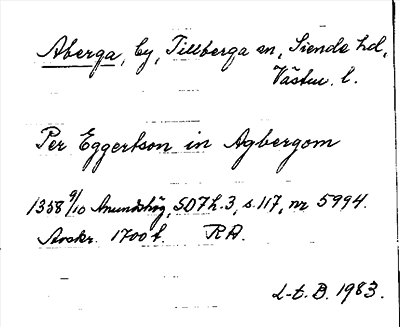 Aberga, by, Tillberga sn, Siende hd,
Västm. l.
Per Eggertson in Agbergom
1358 9/10 Anundshög, SD7h.3, s.117, nr 5994.
Avskr. 1700t. RA.
L-t. B. 1983.